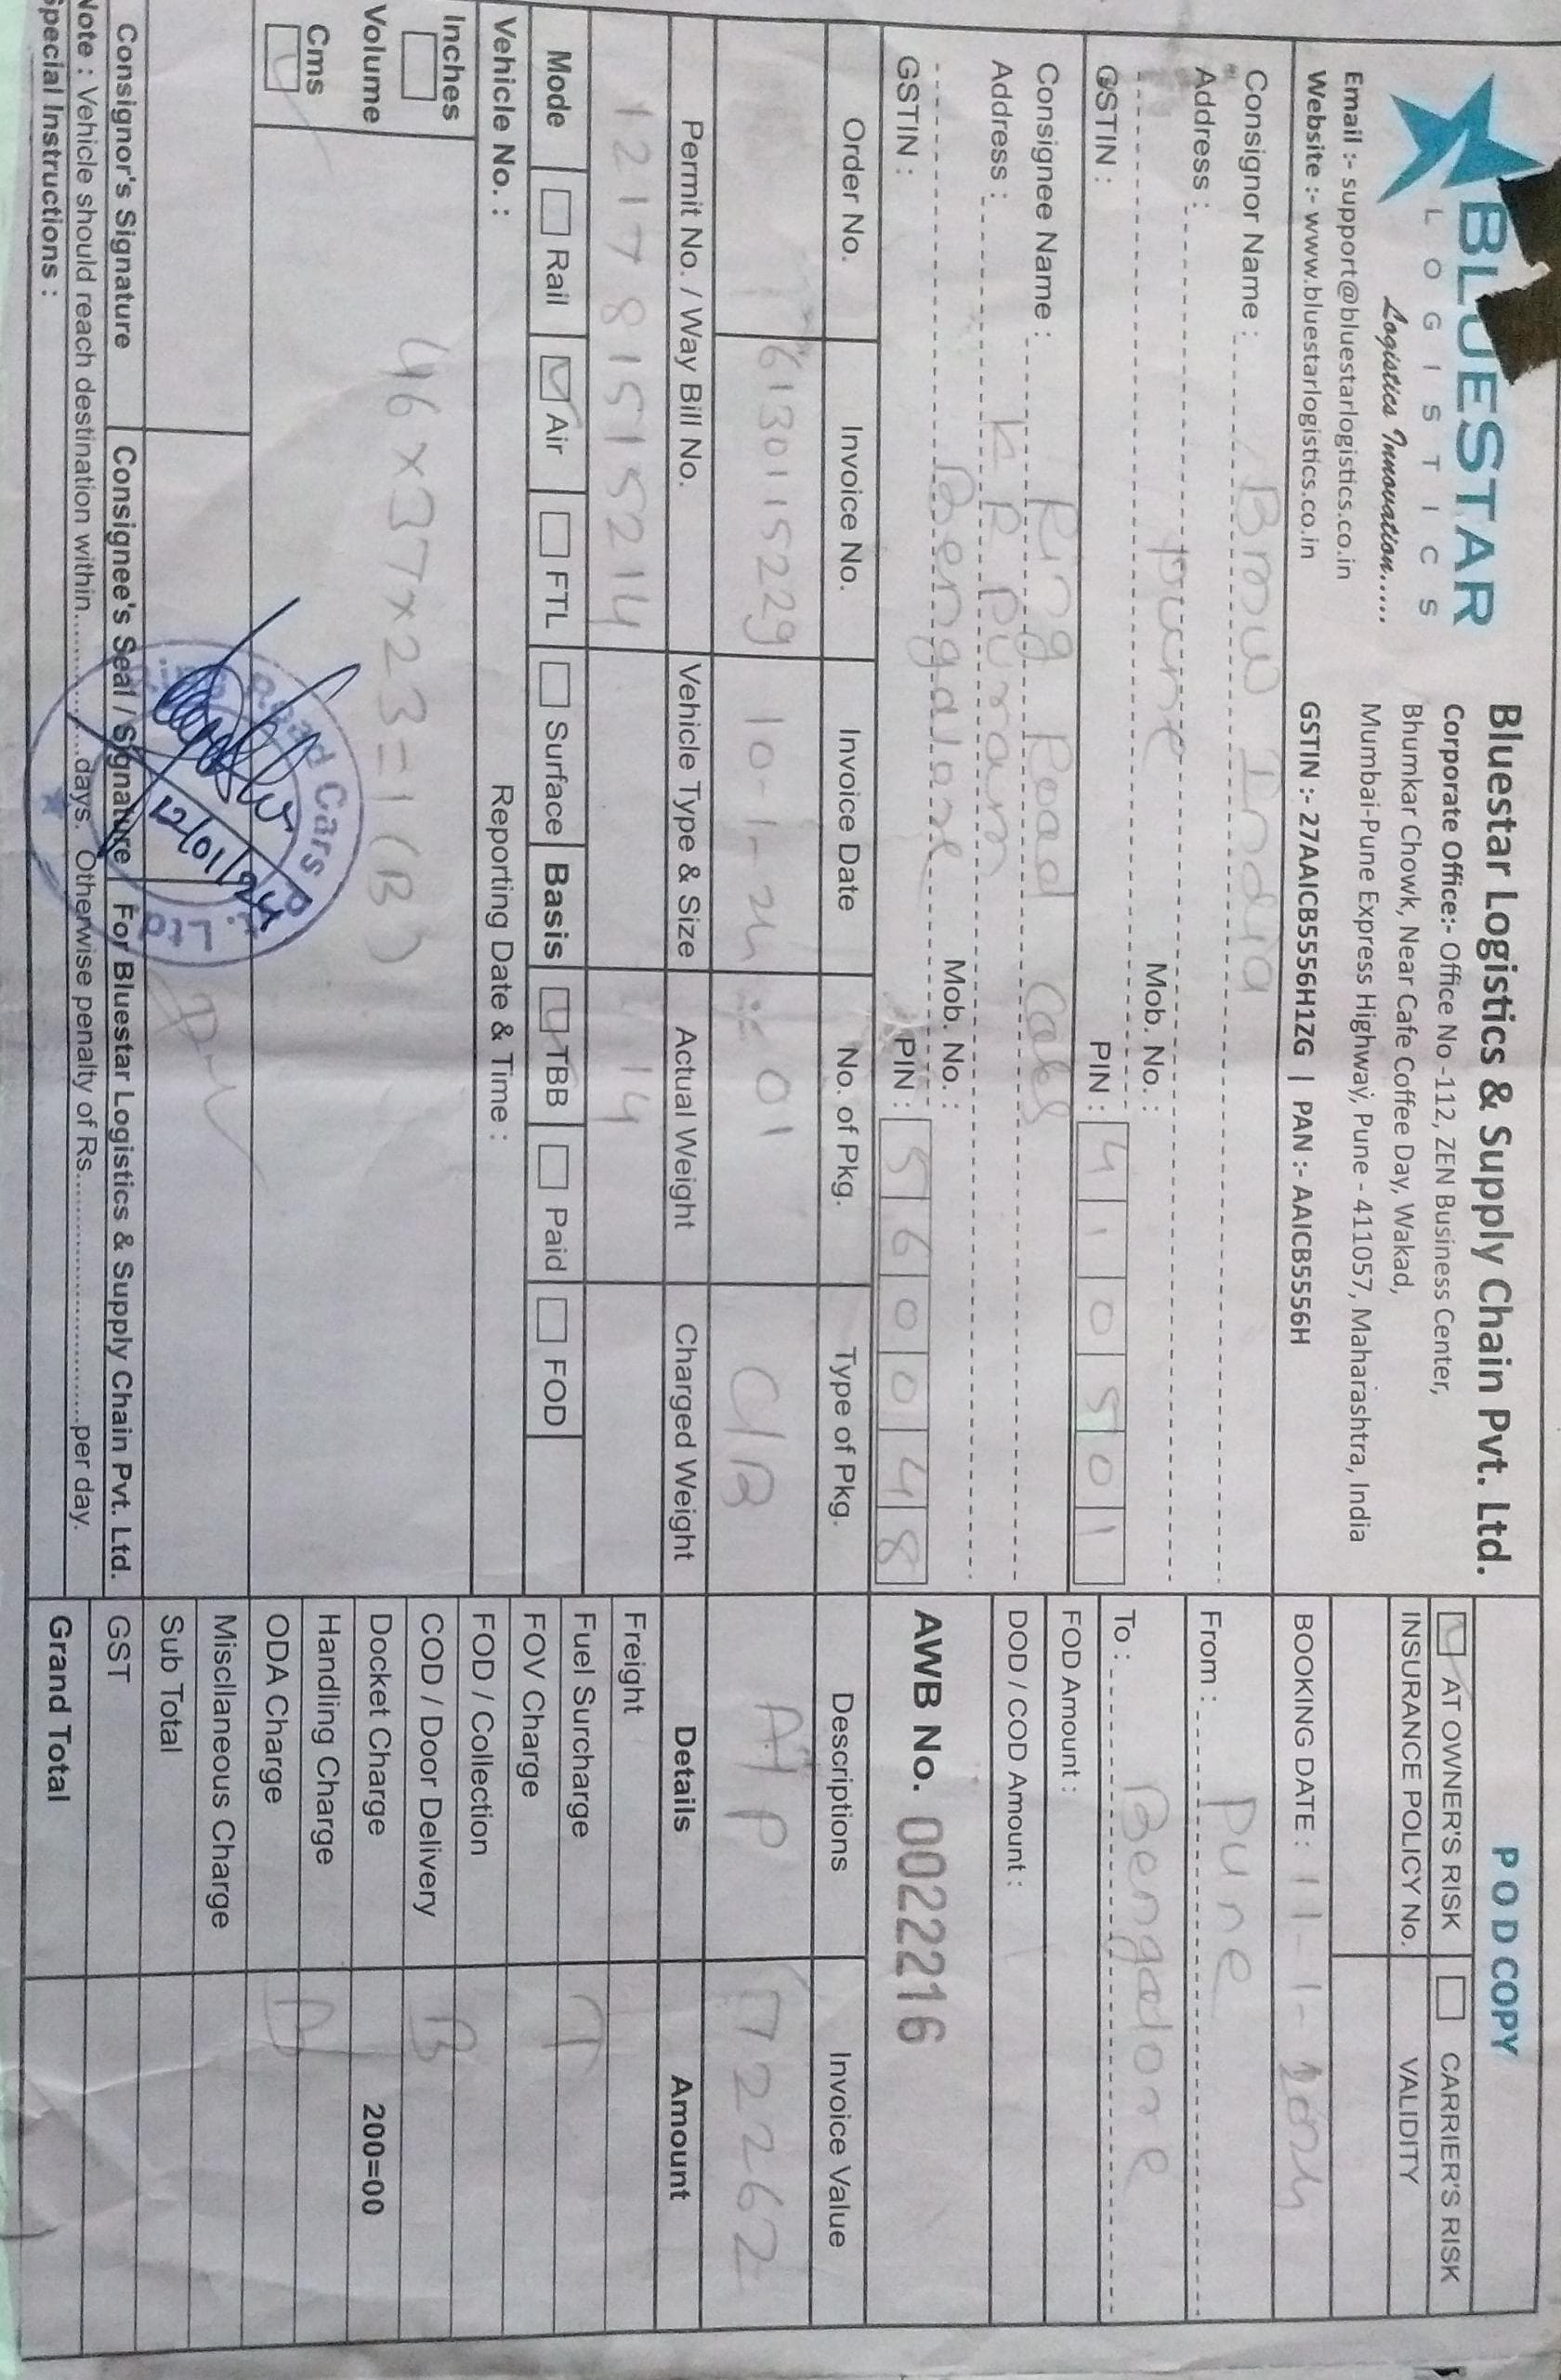 BLUESTAR
LOGISTICS
Logistics Innovation.....
Email :- support@bluestarlogistics.co.in
Website :- www.bluestarlogistics.co.in
Bluestar Logistics & Supply Chain Pvt. Ltd.
Corporate Office:- Office No -112, ZEN Business Center,
Bhumkar Chowk, Near Cafe Coffee Day, Wakad,
Mumbai-Pune Express Highway, Pune - 411057, Maharashtra, India
GSTIN :- 27AAICB5556H1ZG | PAN :- AAICB5556H
POD COPY
AT OWNER'S RISK CARRIER'S RISK
INSURANCE POLICY No. VALIDITY
BOOKING DATE : 11-1-2024
Consignor Name : Bmw India
Address :
pune Mob. No. :
GSTIN : PIN : 410501
From : pune
To : Bengalore
FOD Amount :
DOD / COD Amount :
Consignee Name : Ring Road Cars
Address : K R Puram
Bengalore Mob. No. :
GSTIN : PIN : 560048
AWB No. 0022216
Order No. Invoice No. Invoice Date No. of Pkg. Type of Pkg. Descriptions Invoice Value
6130115229 10-1-24 01 C/B A/P 72262
Permit No. / Way Bill No. Vehicle Type & Size Actual Weight Charged Weight Details Amount
121781515214 14
Mode Rail Air FTL Surface Basis TBB Paid FOD
Vehicle No. : Reporting Date & Time :
Inches
Volume
Cms
46×37×23=1(B)
Freight
Fuel Surcharge T
FOV Charge
FOD / Collection
COD / Door Delivery B
Docket Charge 200=00
Handling Charge
ODA Charge B
Miscllaneous Charge
Sub Total
GST
Grand Total
Ring Road Cars Pvt. Ltd.
12/01/24
Consignor's Signature Consignee's Seal / Signature For Bluestar Logistics & Supply Chain Pvt. Ltd.
Note : Vehicle should reach destination within..............days. Otherwise penalty of Rs..............................per day.
Special Instructions :